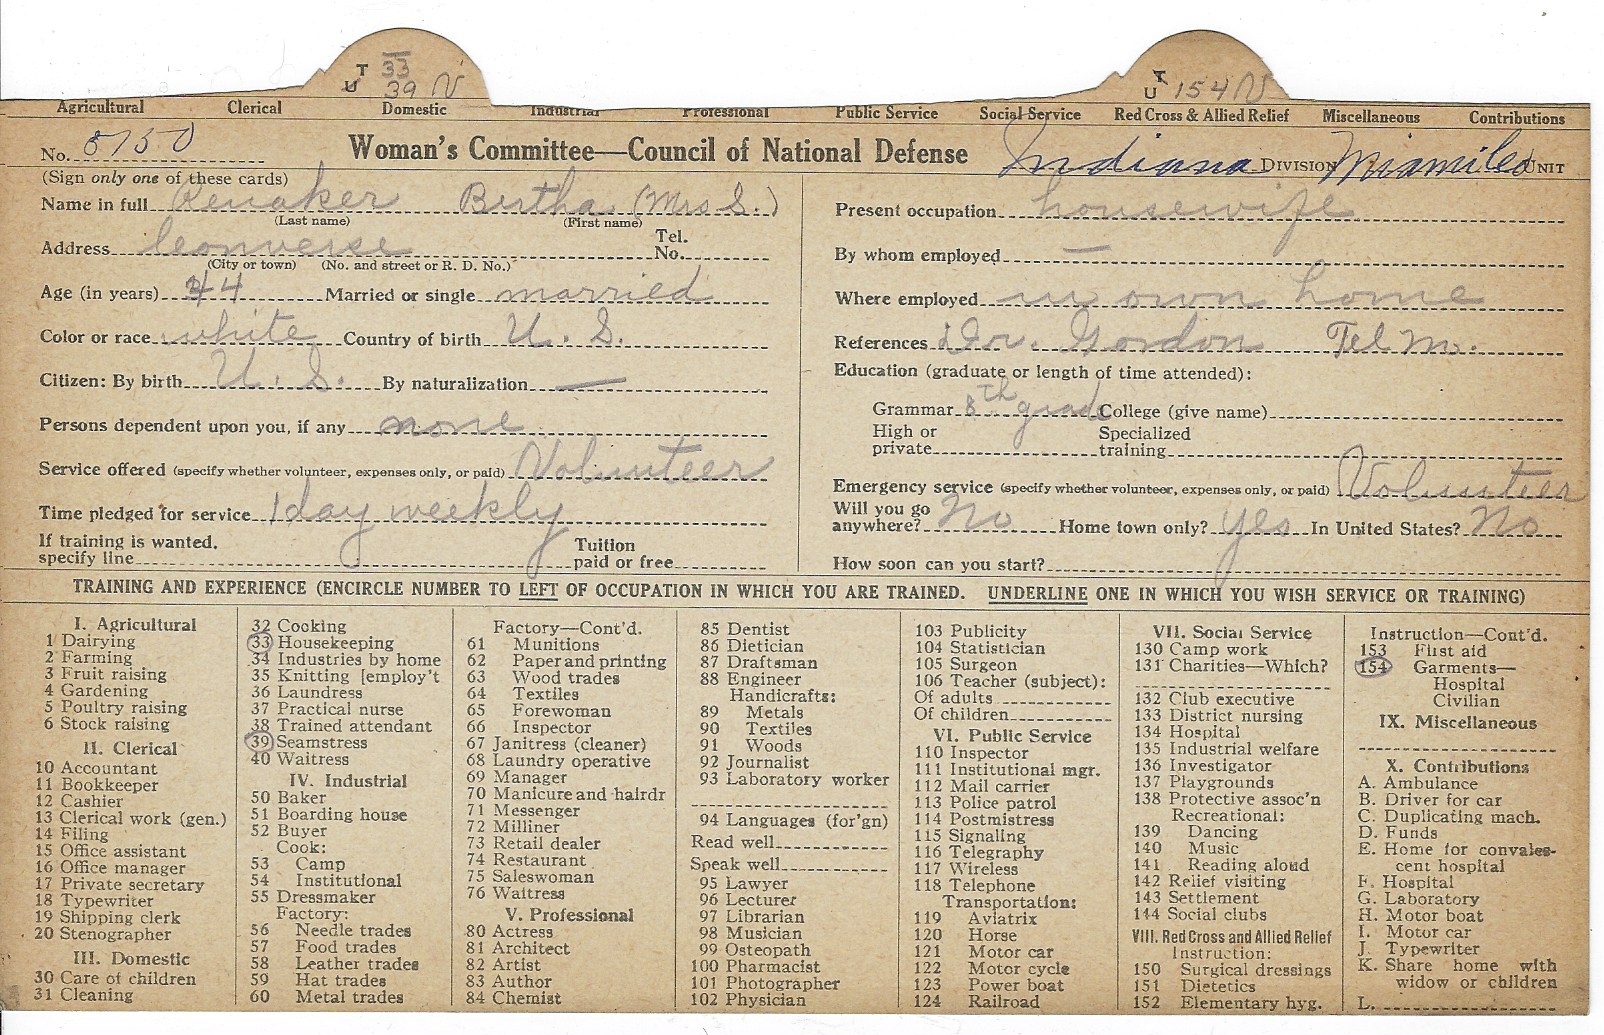 T 33
U 39 V
T
U 154 V
Agricultural Clerical Domestic Industrial Professional Public Service Social Service Red Cross & Allied Relief Miscellaneous Contributions
No. 8150 Woman's Committee—Council of National Defense Indiana DIVISION Miami Co UNIT
(Sign only one of these cards)
Name in full Renaker Bertha (Mrs S.)
(Last name) (First name)
Address Converse Tel. No.
(City or town) (No. and street or R. D. No.)
Age (in years) 44 Married or single married
Color or race white Country of birth U. S.
Citizen: By birth U. S. By naturalization —
Persons dependent upon you, if any none
Service offered (specify whether volunteer, expenses only, or paid) Volunteer
Time pledged for service 1 day weekly
If training is wanted, specify line Tuition paid or free
Present occupation housewife
By whom employed —
Where employed in own home
References Dr. Gordon Tel No.
Education (graduate or length of time attended):
Grammar 8th grade College (give name)
High or private Specialized training
Emergency service (specify whether volunteer, expenses only, or paid) Volunteer
Will you go anywhere? No Home town only? yes In United States? No
How soon can you start?
TRAINING AND EXPERIENCE (ENCIRCLE NUMBER TO LEFT OF OCCUPATION IN WHICH YOU ARE TRAINED. UNDERLINE ONE IN WHICH YOU WISH SERVICE OR TRAINING)
I. Agricultural
1 Dairying
2 Farming
3 Fruit raising
4 Gardening
5 Poultry raising
6 Stock raising
II. Clerical
10 Accountant
11 Bookkeeper
12 Cashier
13 Clerical work (gen.)
14 Filing
15 Office assistant
16 Office manager
17 Private secretary
18 Typewriter
19 Shipping clerk
20 Stenographer
III. Domestic
30 Care of children
31 Cleaning
32 Cooking
33 Housekeeping
34 Industries by home
35 Knitting [employ't
36 Laundress
37 Practical nurse
38 Trained attendant
39 Seamstress
40 Waitress
IV. Industrial
50 Baker
51 Boarding house
52 Buyer
Cook:
53 Camp
54 Institutional
55 Dressmaker
Factory:
56 Needle trades
57 Food trades
58 Leather trades
59 Hat trades
60 Metal trades
Factory—Cont'd.
61 Munitions
62 Paper and printing
63 Wood trades
64 Textiles
65 Forewoman
66 Inspector
67 Janitress (cleaner)
68 Laundry operative
69 Manager
70 Manicure and hairdr
71 Messenger
72 Milliner
73 Retail dealer
74 Restaurant
75 Saleswoman
76 Waitress
V. Professional
80 Actress
81 Architect
82 Artist
83 Author
84 Chemist
85 Dentist
86 Dietician
87 Draftsman
88 Engineer
Handicrafts:
89 Metals
90 Textiles
91 Woods
92 Journalist
93 Laboratory worker
94 Languages (for'gn)
Read well
Speak well
95 Lawyer
96 Lecturer
97 Librarian
98 Musician
99 Osteopath
100 Pharmacist
101 Photographer
102 Physician
103 Publicity
104 Statistician
105 Surgeon
106 Teacher (subject):
Of adults
Of children
VI. Public Service
110 Inspector
111 Institutional mgr.
112 Mail carrier
113 Police patrol
114 Postmistress
115 Signaling
116 Telegraphy
117 Wireless
118 Telephone
Transportation:
119 Aviatrix
120 Horse
121 Motor car
122 Motor cycle
123 Power boat
124 Railroad
VII. Social Service
130 Camp work
131 Charities—Which?
132 Club executive
133 District nursing
134 Hospital
135 Industrial welfare
136 Investigator
137 Playgrounds
138 Protective assoc'n
Recreational:
139 Dancing
140 Music
141 Reading aloud
142 Relief visiting
143 Settlement
144 Social clubs
VIII. Red Cross and Allied Relief
Instruction:
150 Surgical dressings
151 Dietetics
152 Elementary hyg.
Instruction—Cont'd.
153 First aid
154 Garments—
Hospital
Civilian
IX. Miscellaneous
X. Contributions
A. Ambulance
B. Driver for car
C. Duplicating mach.
D. Funds
E. Home for convales-
cent hospital
F. Hospital
G. Laboratory
H. Motor boat
I. Motor car
J. Typewriter
K. Share home with
widow or children
L.